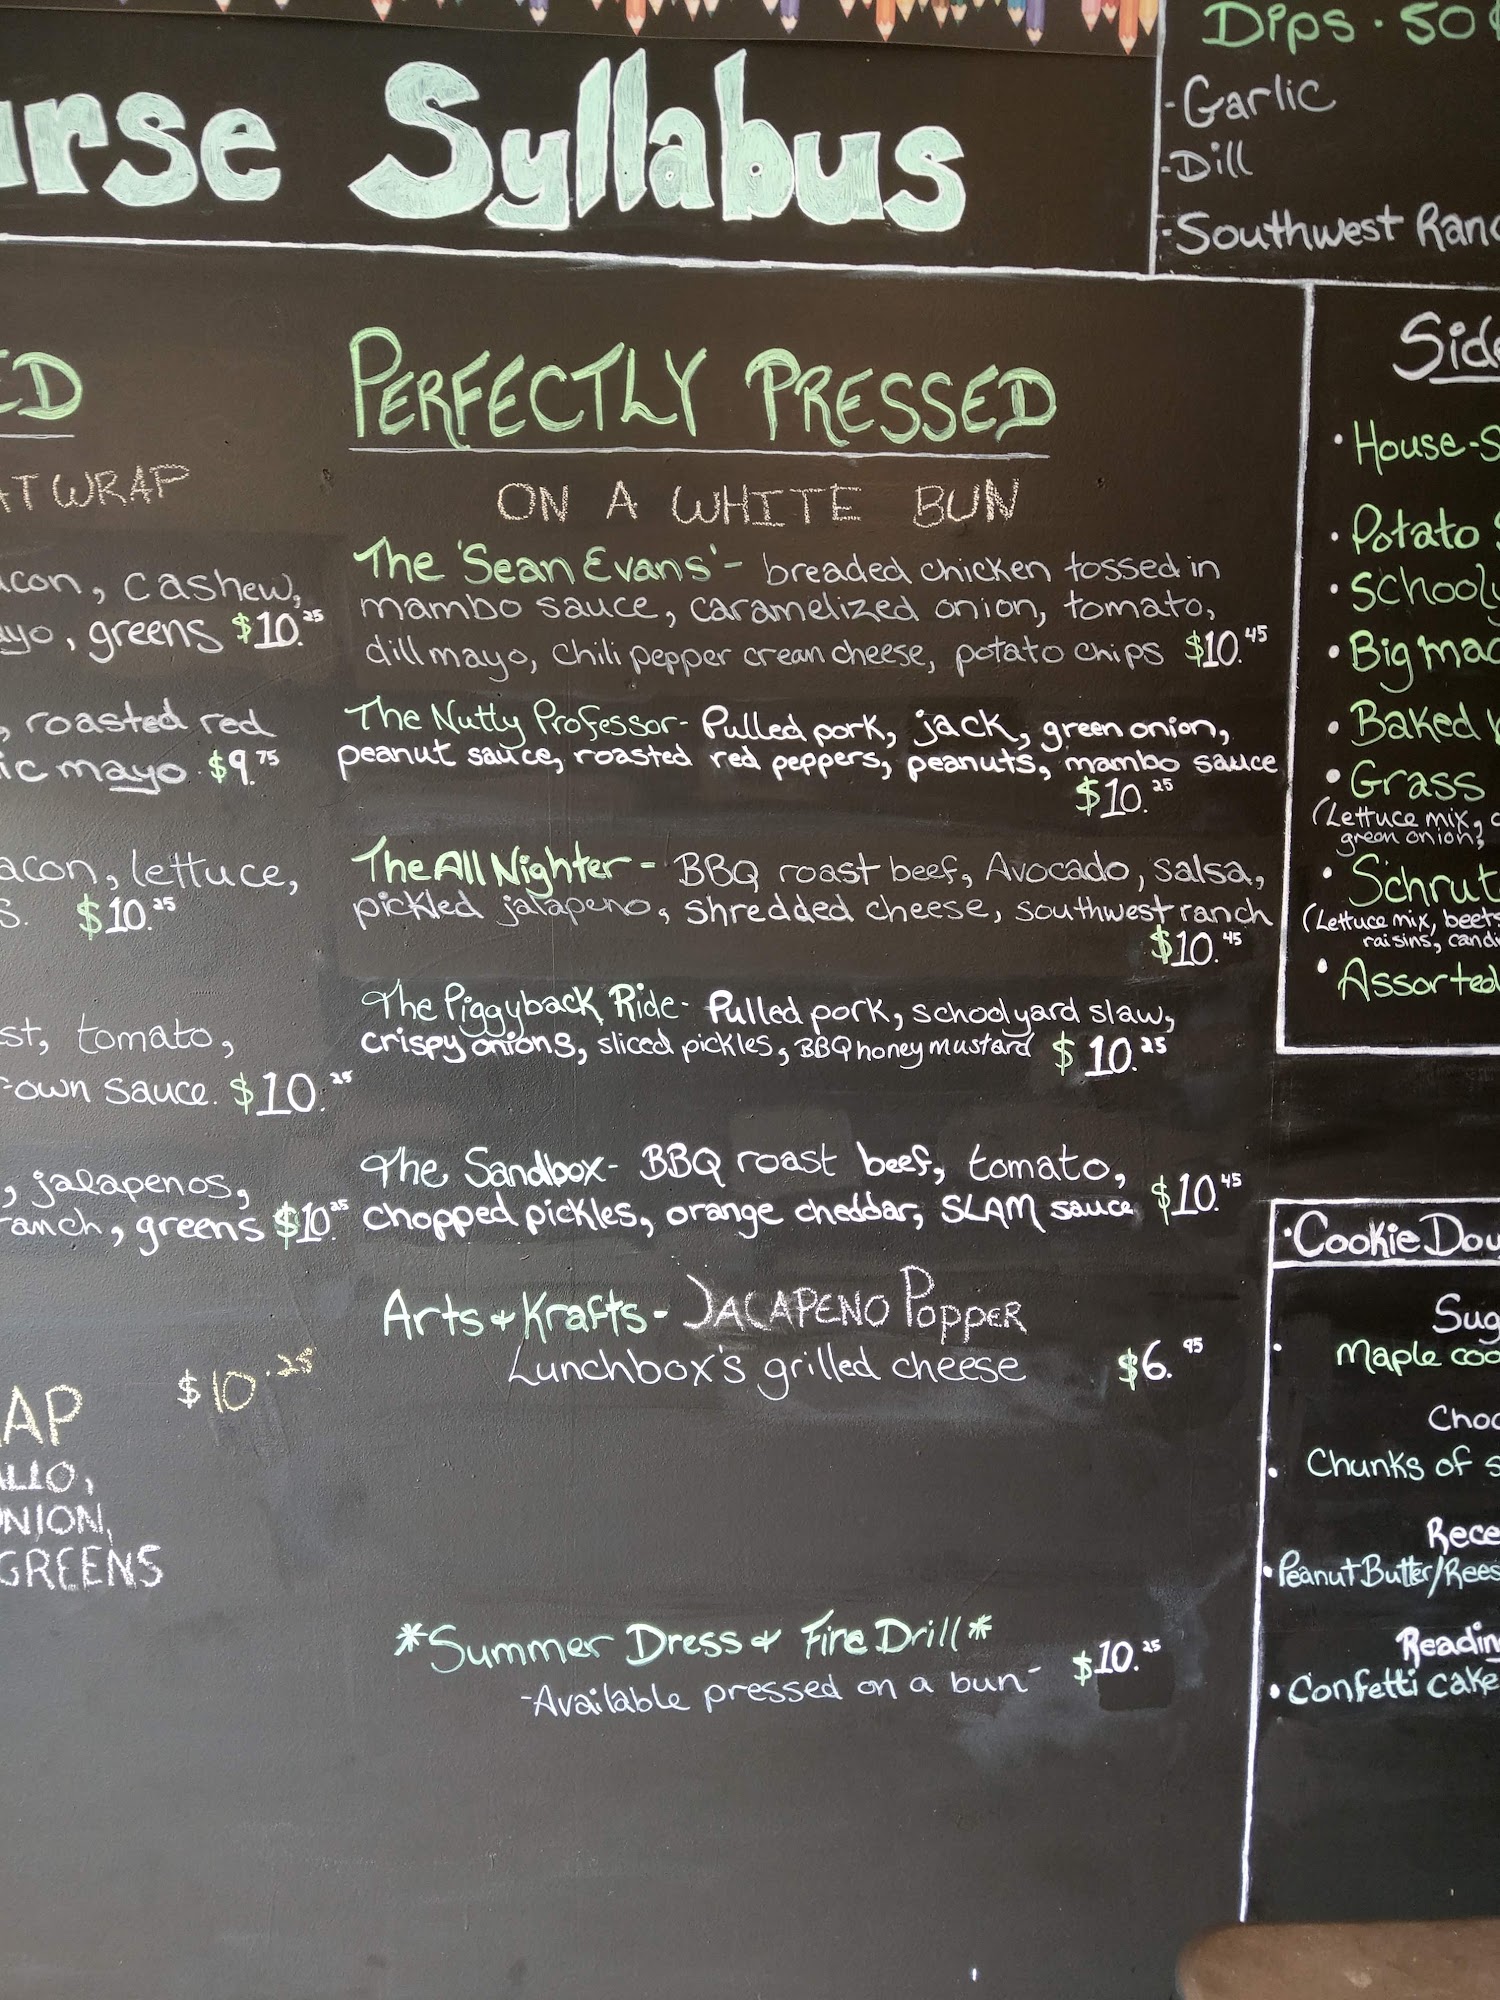 urse Syllabus
Dips · 50
- Garlic
- Dill
- Southwest
ED
AT WRAP
acon, cashew,
ayo, greens $10.25
, roasted red
ic mayo $9.75
acon, lettuce,
s. $10.25
st, tomato,
own sauce. $10.25
, jalapenos,
ranch, greens $10.25
$10.25
AP
LLO,
NION,
GREENS
PERFECTLY PRESSED
ON A WHITE BUN
The 'Sean Evans' - breaded chicken tossed in
mambo sauce, caramelized onion, tomato,
dill mayo, chili pepper crean cheese, potato chips $10.45
The Nutty Professor - Pulled pork, jack, green onion,
peanut sauce, roasted red peppers, peanuts, mambo sauce
$10.25
The All Nighter - BBQ roast beef, Avocado, salsa,
pickled jalapeno, shredded cheese, southwest ranch
$10.45
The Piggyback Ride - Pulled pork, schoolyard slaw,
crispy onions, sliced pickles, BBQ honey mustard $10.25
The Sandbox - BBQ roast beef, tomato,
chopped pickles, orange cheddar, SLAM sauce $10.45
Arts & Krafts - JALAPENO POPPER
Lunchbox's grilled cheese $6.95
*Summer Dress & Fire Drill*
-Available pressed on a bun- $10.25
Side
· House-S
· Potato
· Schooly
· Big mac
· Baked
· Grass
(Lettuce mix,
green onion,
· Schrut
(Lettuce mix, beets
raisins, candi
· Assorted
· Cookie Dou
Sug
· Maple coo
Choc
· Chunks of s
Rece
· Peanut Butter/Rees
Readin
· Confetti cake